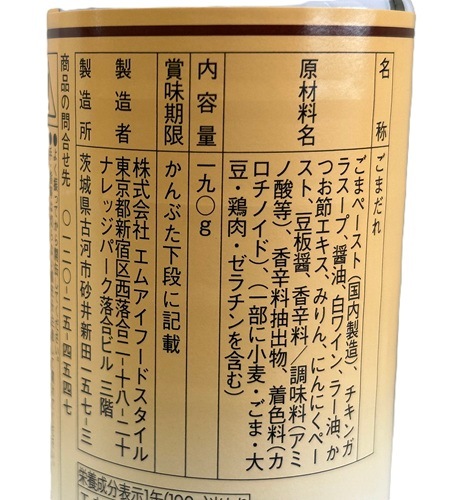 名称
ごまだれ
原材料名
ごまペースト(国内製造)、チキンガ
ラスープ、醤油、白ワイン、ラー油、か
つお節エキス、みりん、にんにくペー
スト、豆板醤、香辛料/調味料(アミ
ノ酸等)、香辛料抽出物、着色料(カ
ロチノイド)、(一部に小麦・ごま・大
豆・鶏肉・ゼラチンを含む)
内容量
一九〇g
賞味期限
かんぶた下段に記載
製造者
株式会社 エムアイフードスタイル
東京都新宿区西落合二-十八-二十
ナレッジパーク落合ビル 三階
製造所
茨城県古河市砂井新田一五七-三
商品の問合せ先 〇一二〇-二五-四五四七
栄養成分表示1缶(190